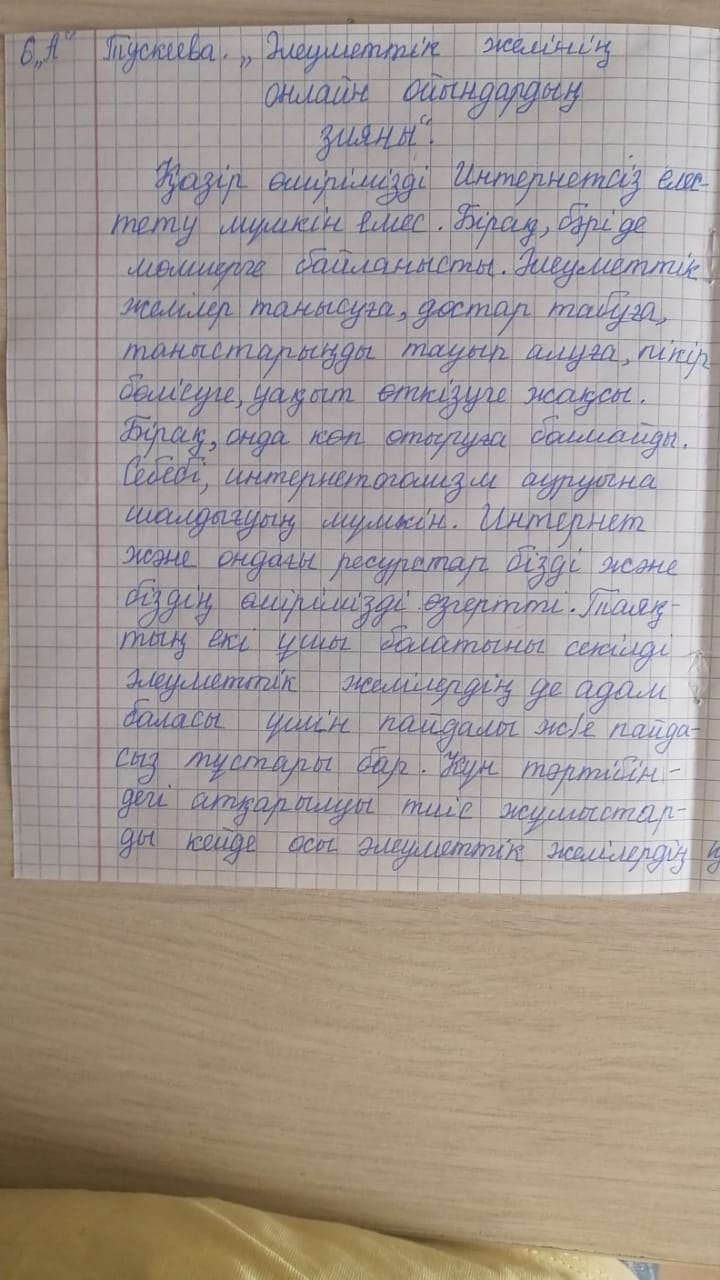 6 „А" Тускеева. „Әлеуметтік желінің
онлайн ойындардың
зияны".
Қазір өмірімізді Интернетсіз елес-
тету мүмкін емес. Бірақ, бәрі де
мөлшерге байланысты. Әлеуметтік
желілер танысуға, достар табуға,
таныстарыңды тауып алуға, пікір
бөлісуге, уақыт өткізуге жақсы.
Бірақ, онда көп отыруға болмайды.
Себебі, интернетоголизм ауруына
шалдығуың мүмкін. Интернет
және ондағы ресурстар бізді және
біздің өмірімізді өзгертті. Таяқ-
тың екі ұшы болатыны секілді
әлеуметтік желілердің де адам
баласы үшін пайдалы ж/е пайда-
сыз тұстары бар. Күн тәртібін-
дегі атқарылуы тиіс жұмыстар-
ды кейде осы әлеуметтік желілердің